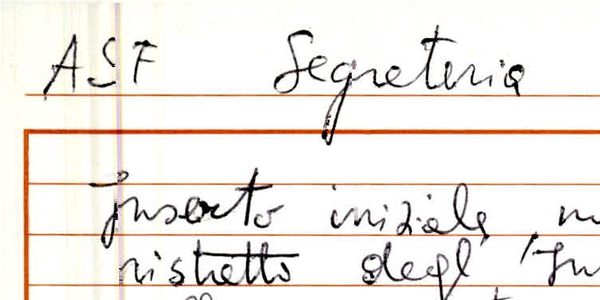 ASF Segreteria
inserto iniziale
ristretto degl'